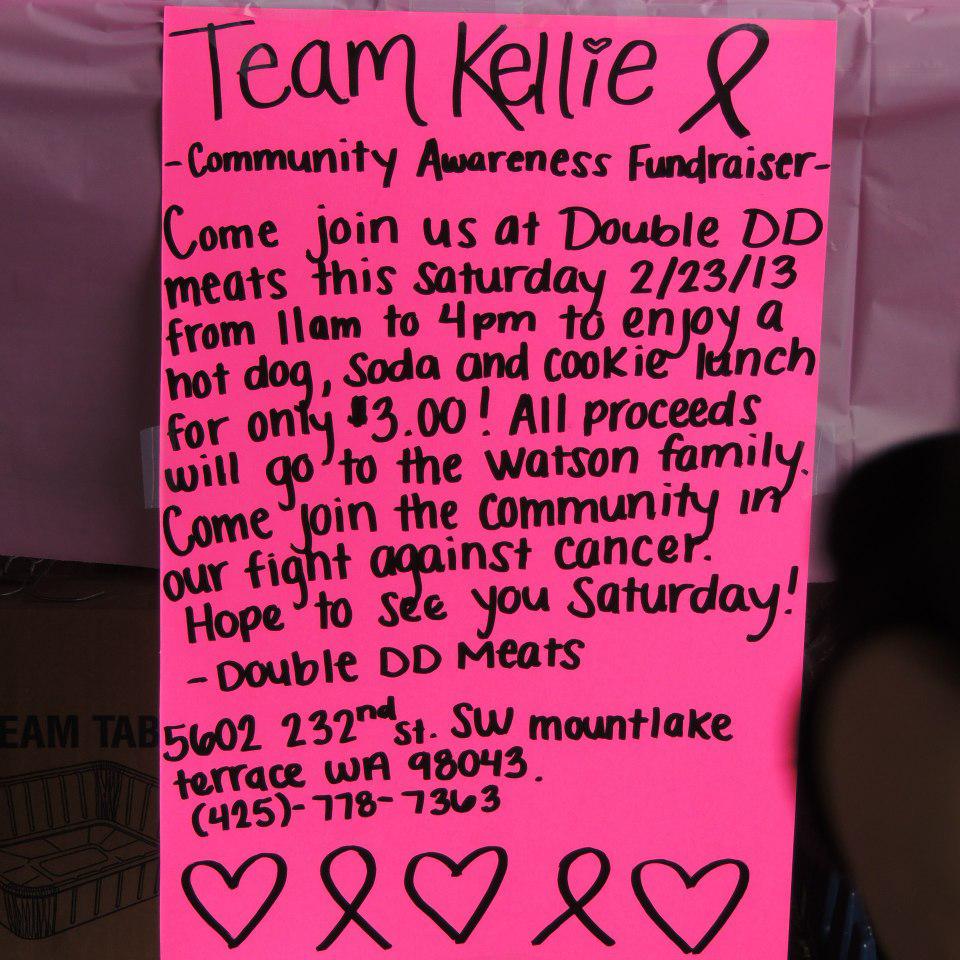 Team Kellie
-Community Awareness Fundraiser-
Come join us at Double DD
meats this Saturday 2/23/13
from 11am to 4pm to enjoy a
hot dog, Soda and cookie lunch
for only $3.00! All proceeds
will go to the Watson family.
Come join the community in
our fight against cancer.
Hope to see you Saturday!
-Double DD Meats
5602 232nd St. SW mountlake
terrace WA 98043.
(425)-778-7363
EAM TAB